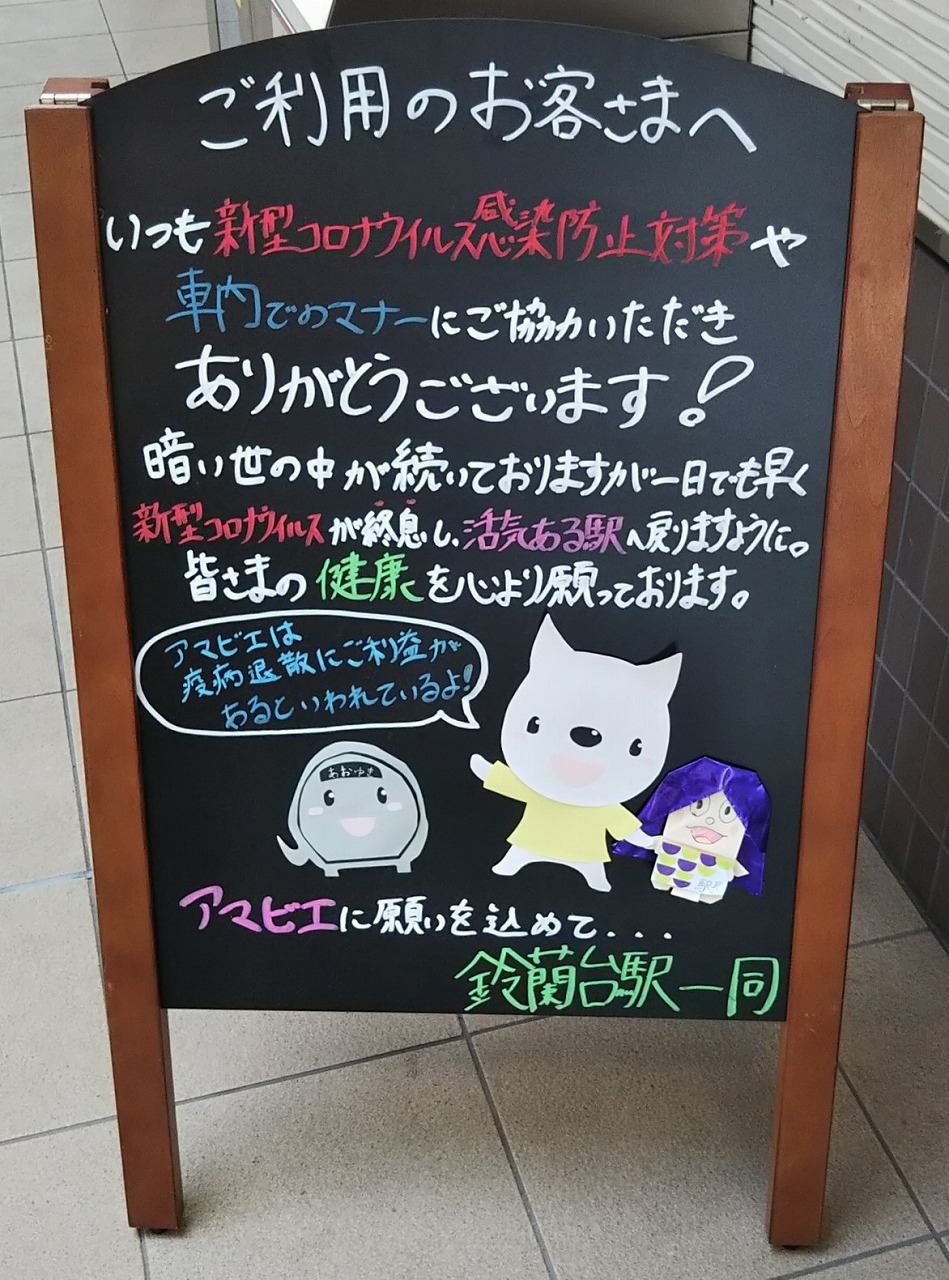 ご利用のお客さまへ
いつも新型コロナウイルス感染防止対策や
車内でのマナーにご協力いただき
ありがとうございます!
暗い世の中が続いておりますが一日でも早く
新型コロナウイルスが終息し、活気ある駅へ戻りますように。
皆さまの健康を心より願っております。
アマビエは
疫病退散にご利益が
あるといわれているよ!
あおゆき
駅長
アマビエに願いを込めて...
鈴蘭台駅一同